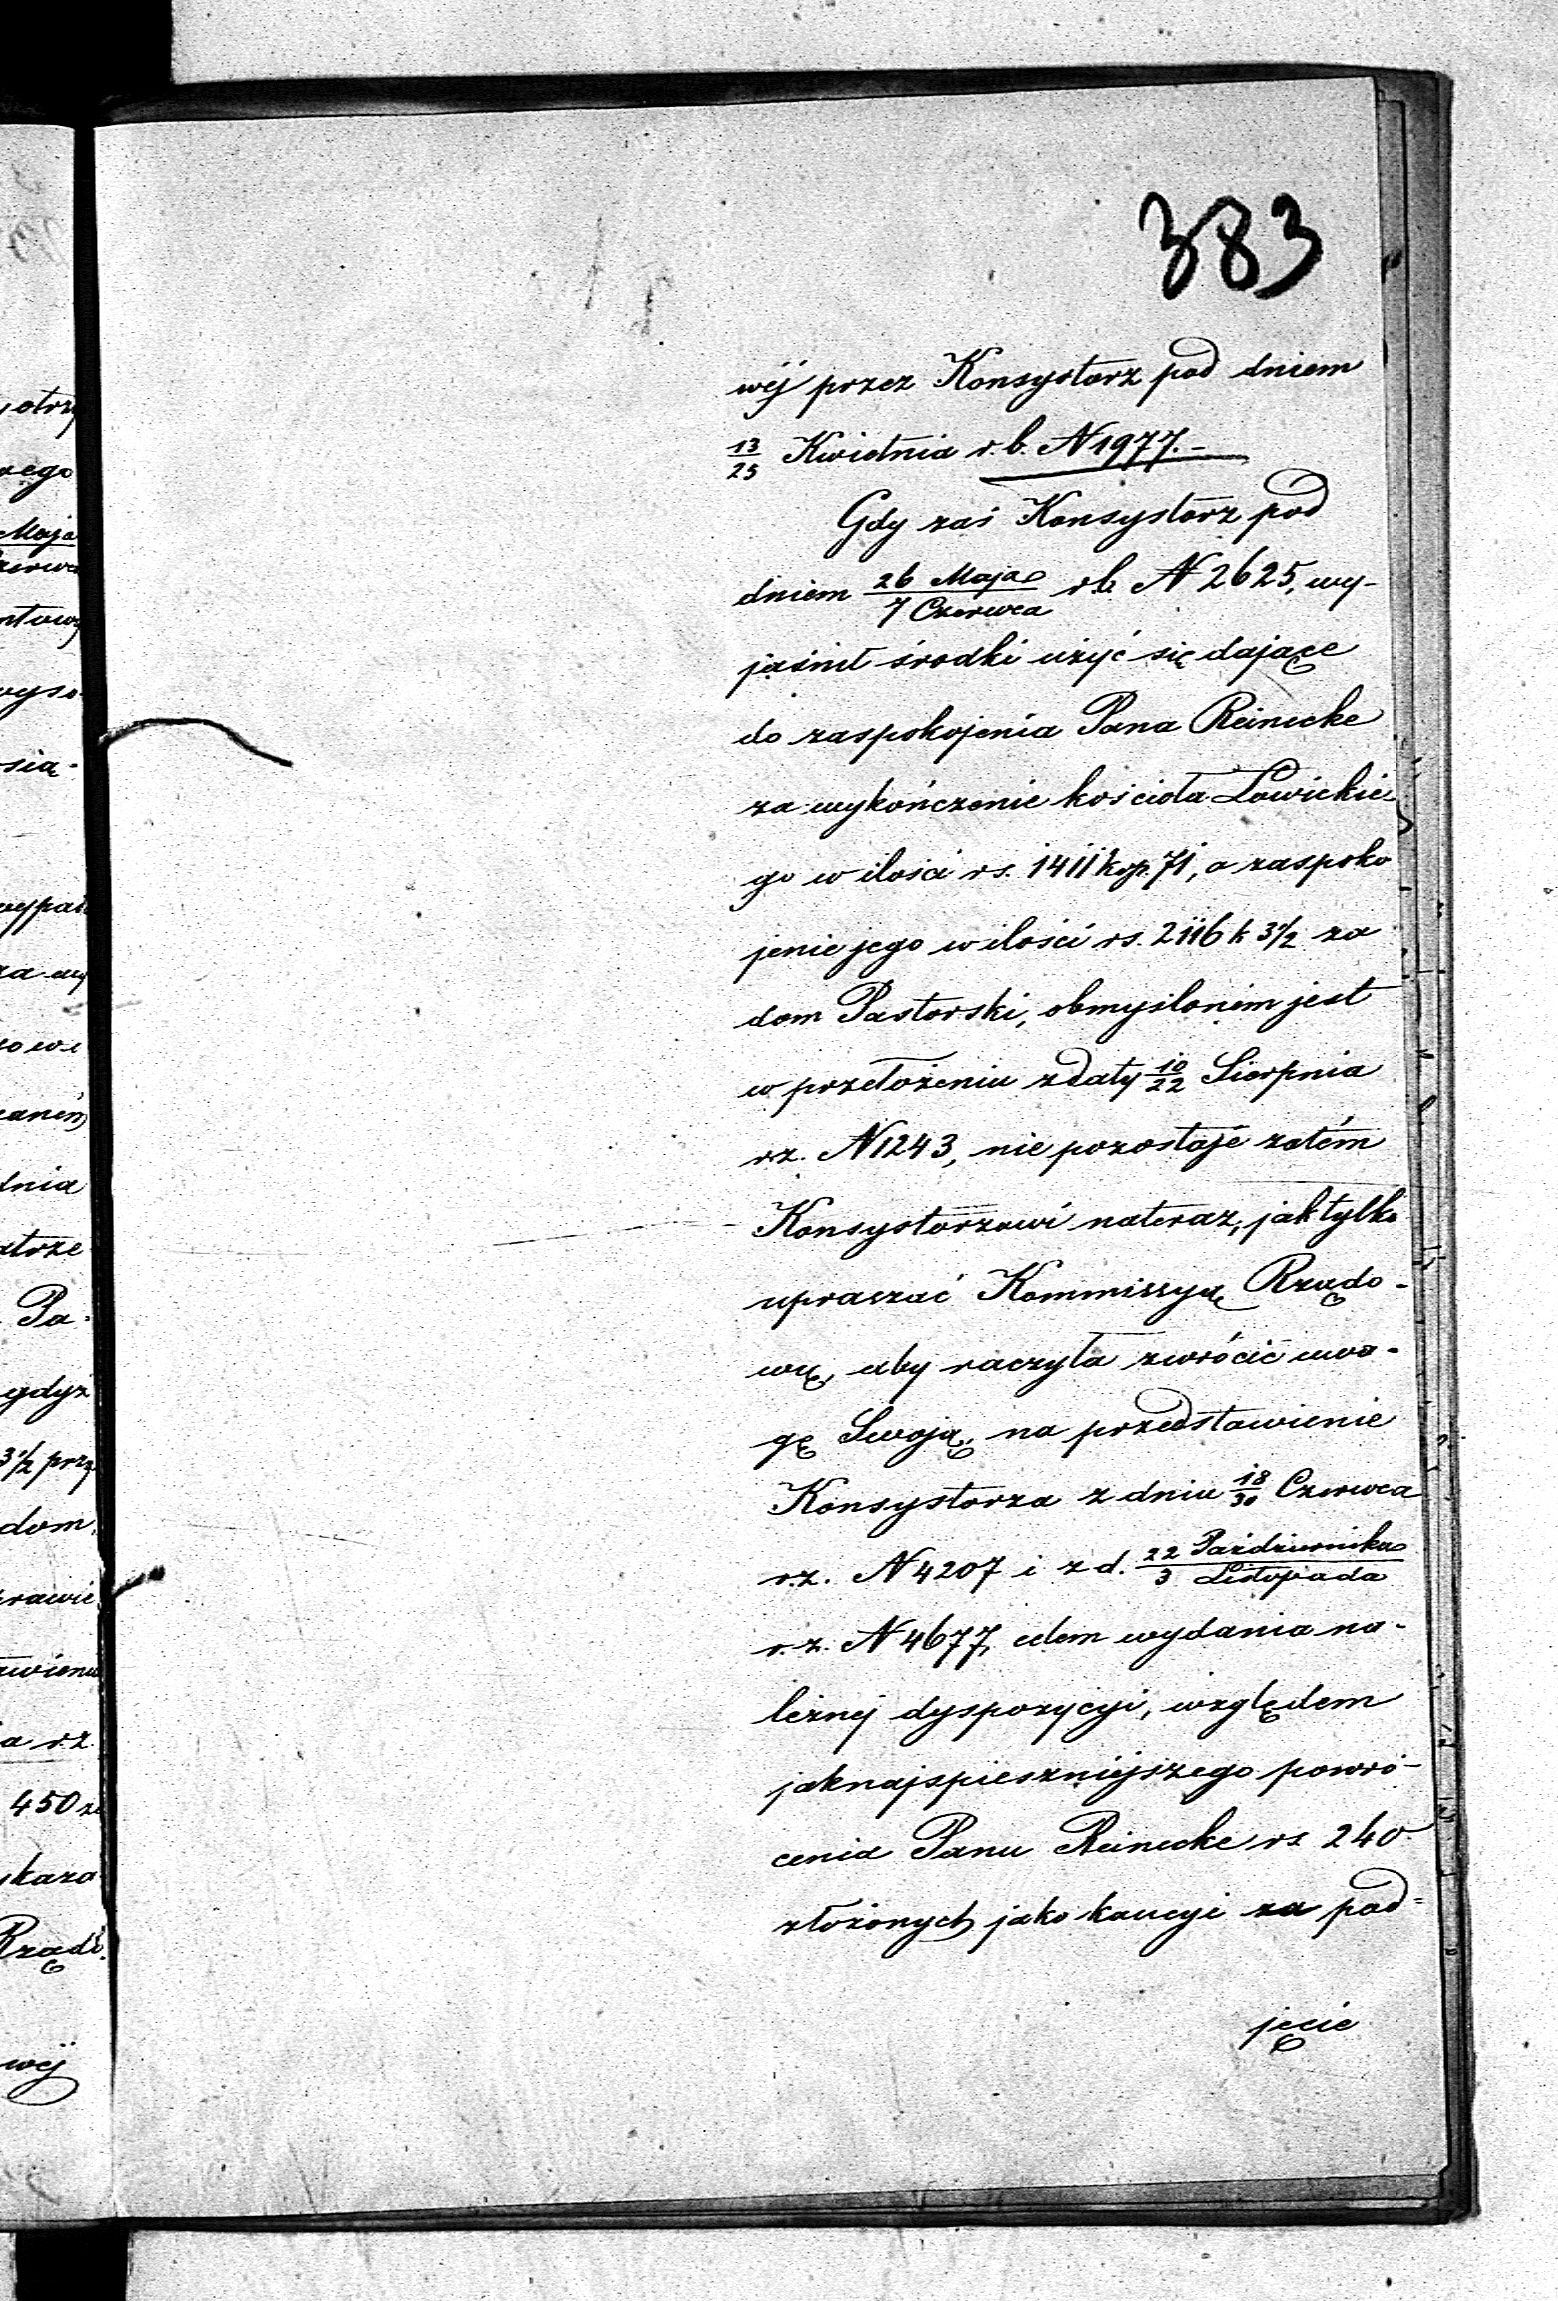 383
wéj przez Konsystorz pod dniem
13/25 Kwietnia r. b. N 1977. –
Gdy zaś Konsystorz pod
dniem 26 Maja/7 Czerwca r. b. N 2625, wy-
jaśnił środki użyć się dające
do zaspokojenia Pana Reinecke
za wykończenie kościoła Łowickie
go w ilości rs. 1411 kop. 71, a zaspoko
jenie jego w ilości rs. 2116 k 3½ za
dom Pastorski, obmyślonem jest
w przełożeniu z daty 10/22 Sierpnia
r. z. N 1243, nie pozostaje zatém
Konsystorzowi nateraz, jak tylko
upraszać Kommissyą Rządo-
wą, aby raczyła zwrócić uwa-
gę Swoją, na przedstawienie
Konsystorza z dnia 18/30 Czerwca
r. z. N 4207 i z d. 22 Października/3 Listopada
r. z. N 4677, celem wydania na-
leżnéj dyspozycyi, względem
jaknajspieszniéjszego powró-
cenia Panu Reinecke rs. 240
złożonych jako kaucyi za pod=
jęcie
otrzy
Maja
dnia
Pa-
gdyż
3½ przy
dom
a r. z.
450 z
ykaza
Rządo
wéj